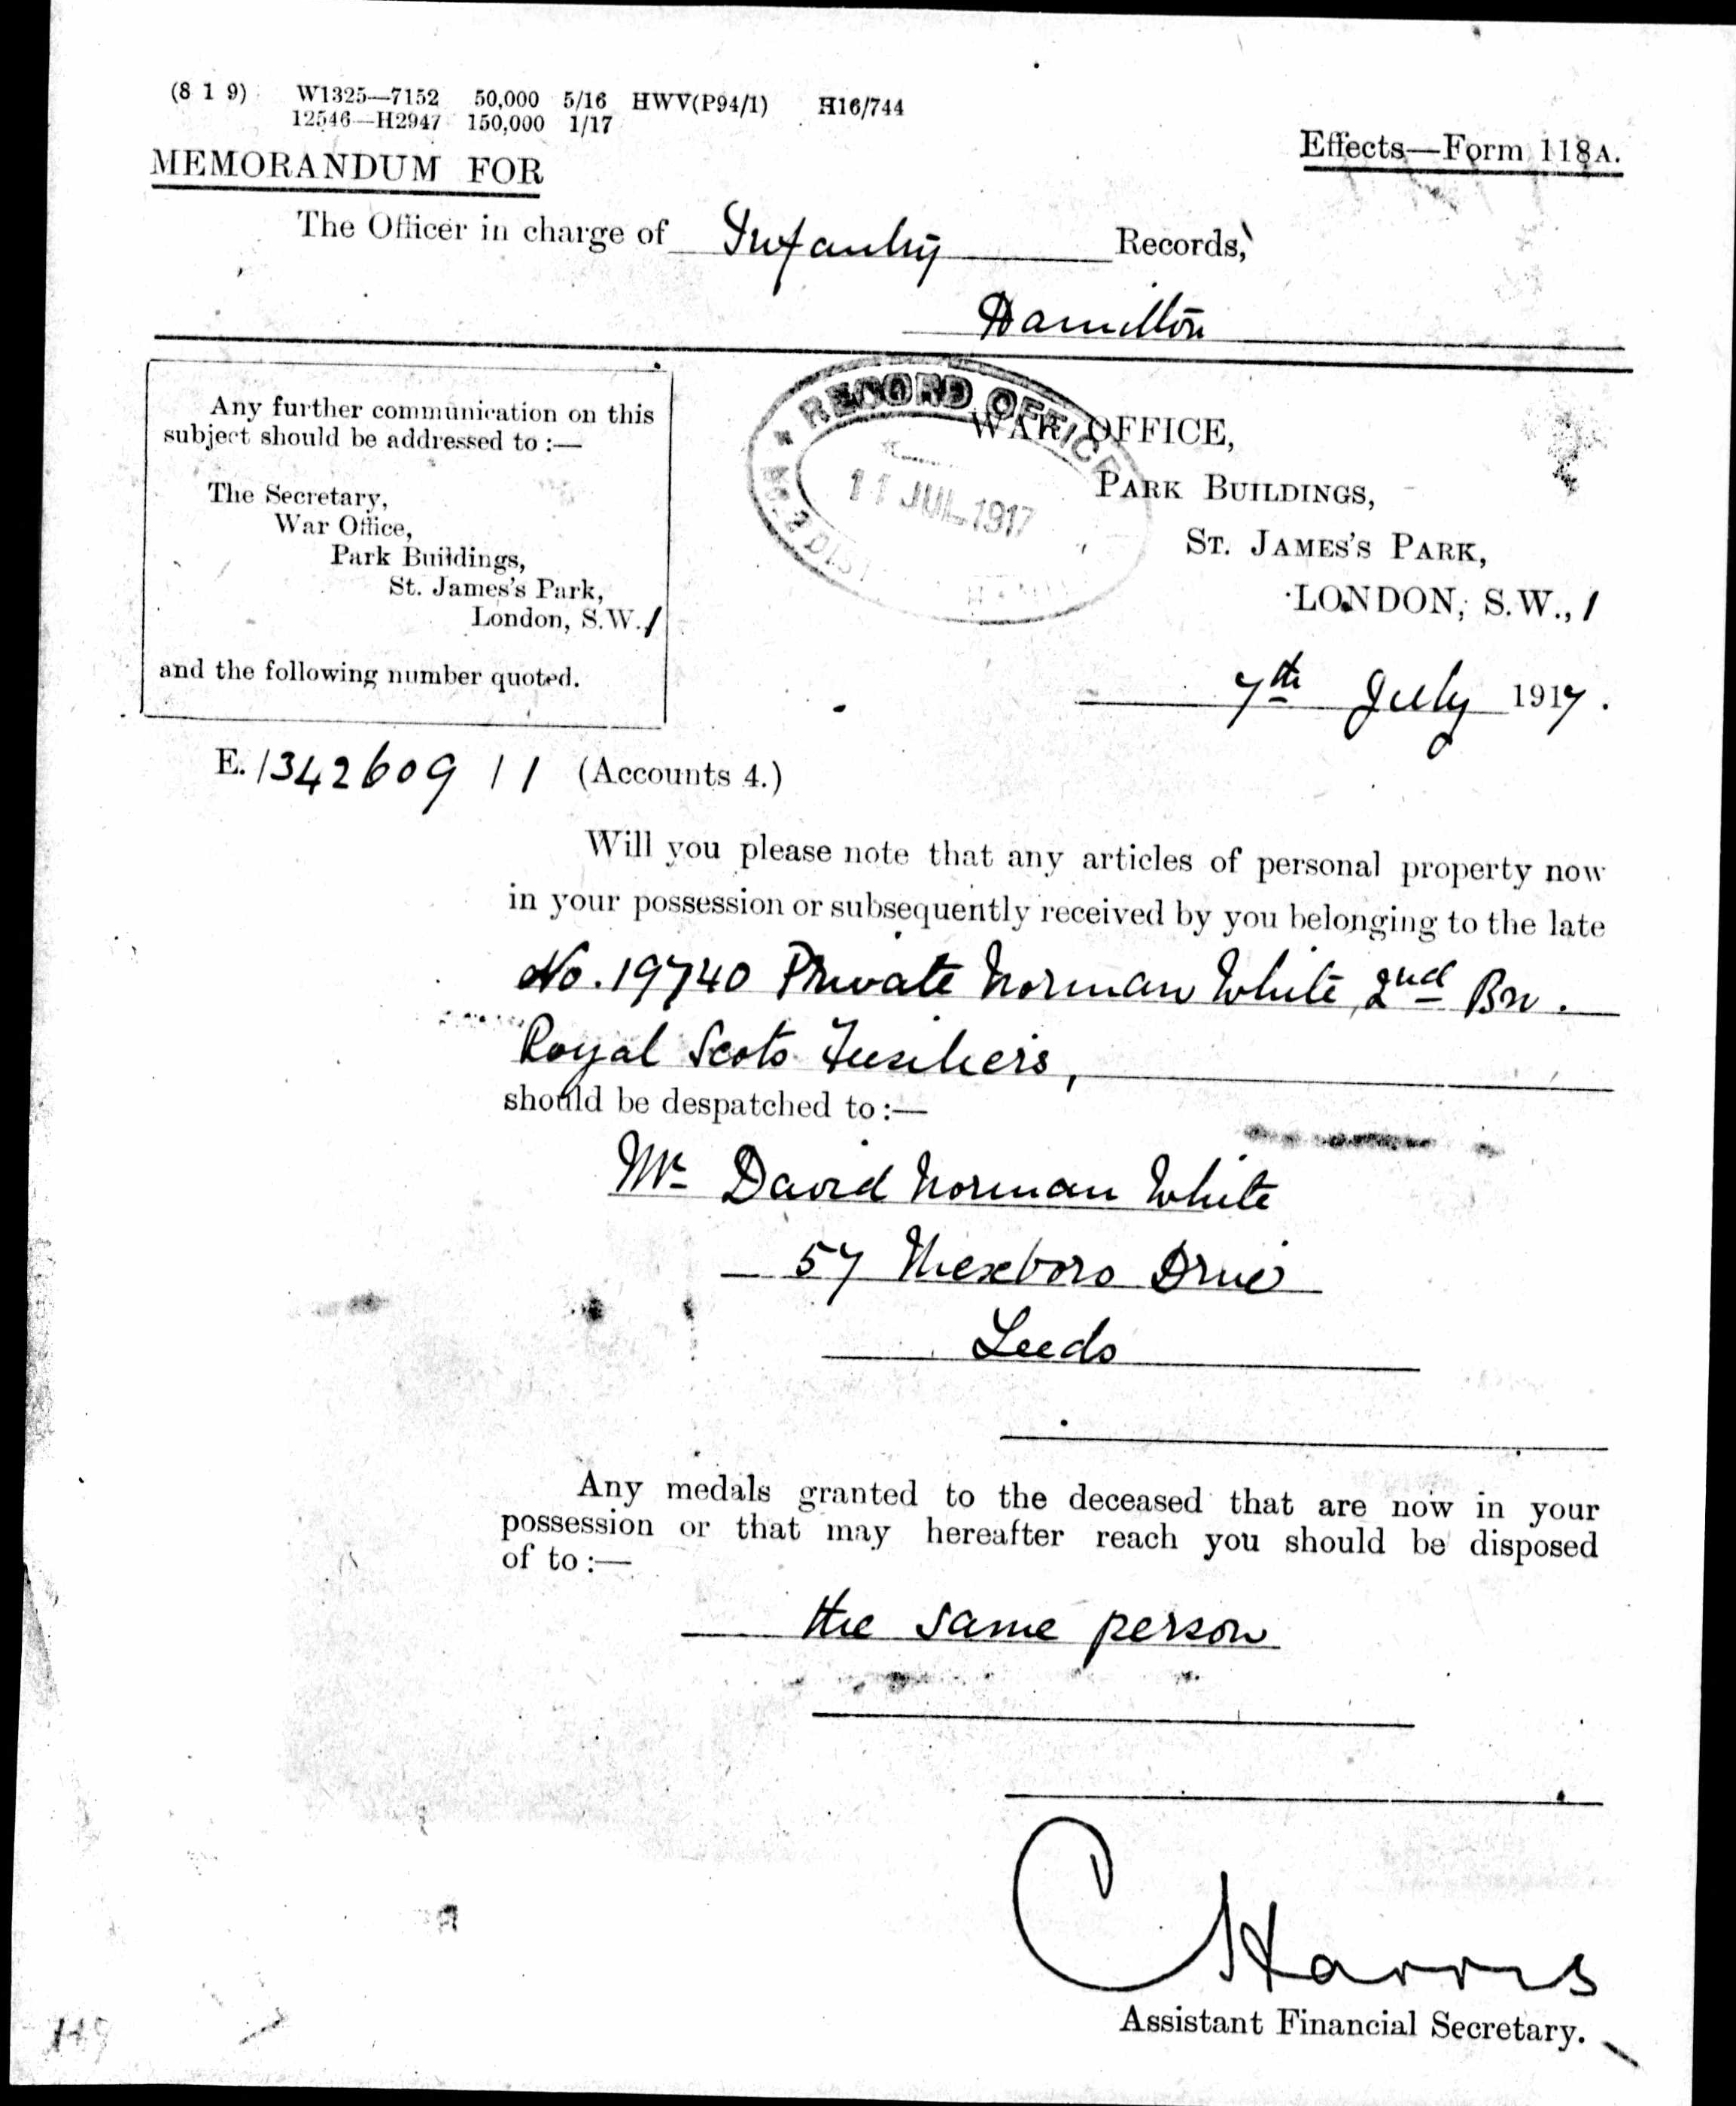 (8 1 9) W1325—7152 50,000 5/16 HWV(P94/1) H16/744
12546—H2947 150,000 1/17
Effects—Form 118A.
MEMORANDUM FOR
The Officer in charge of Infantry Records,
Hamilton
Any further communication on this
subject should be addressed to :—
The Secretary,
War Office,
Park Buildings,
St. James's Park,
London, S.W.1
and the following number quoted.
RECORD OFFICE
11 JUL 1917
No. 2 DIST
WAR OFFICE,
PARK BUILDINGS,
ST. JAMES'S PARK,
LONDON, S.W., 1
7th July 1917.
E. 1342609/1 (Accounts 4.)
Will you please note that any articles of personal property now
in your possession or subsequently received by you belonging to the late
No. 19740 Private Norman White, 2nd Bn.
Royal Scots Fusiliers,
should be despatched to :—
Mr David Norman White
57 Mexboro Drive
Leeds
Any medals granted to the deceased that are now in your
possession or that may hereafter reach you should be disposed
of to :—
the same person
C Harris
Assistant Financial Secretary.